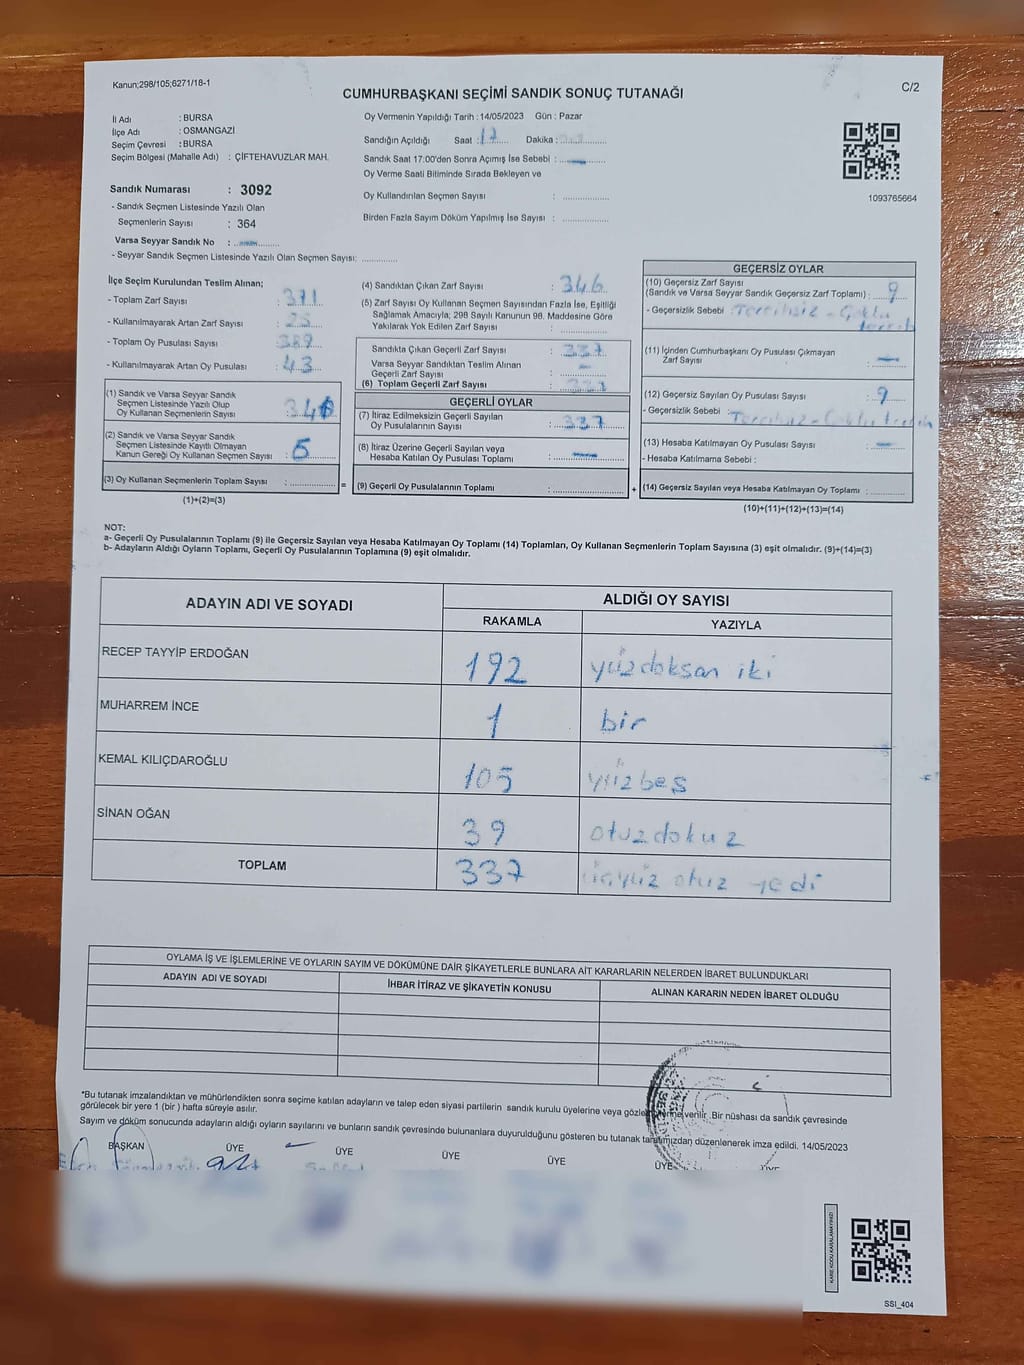 Kanun;298/105;6271/18-1
C/2
CUMHURBAŞKANI SEÇİMİ SANDIK SONUÇ TUTANAĞI
İl Adı : BURSA
İlçe Adı : OSMANGAZİ
Seçim Çevresi : BURSA
Seçim Bölgesi (Mahalle Adı) : ÇİFTEHAVUZLAR MAH.
Sandık Numarası : 3092
- Sandık Seçmen Listesinde Yazılı Olan
Seçmenlerin Sayısı : 364
Varsa Seyyar Sandık No :
- Seyyar Sandık Seçmen Listesinde Yazılı Olan Seçmen Sayısı:
Oy Vermenin Yapıldığı Tarih : 14/05/2023 Gün : Pazar
Sandığın Açıldığı Saat : 17 Dakika :
Sandık Saat 17:00'den Sonra Açımış İse Sebebi :
Oy Verme Saati Bitiminde Sırada Bekleyen ve
Oy Kullandırılan Seçmen Sayısı :
Birden Fazla Sayım Döküm Yapılmış İse Sayısı :
1093765664
İlçe Seçim Kurulundan Teslim Alınan;
- Toplam Zarf Sayısı : 371
- Kullanılmayarak Artan Zarf Sayısı : 25
- Toplam Oy Pusulası Sayısı : 389
- Kullanılmayarak Artan Oy Pusulası : 43
(1) Sandık ve Varsa Seyyar Sandık
Seçmen Listesinde Yazılı Olup
Oy Kullanan Seçmenlerin Sayısı :
(2) Sandık ve Varsa Seyyar Sandık
Seçmen Listesinde Kayıtlı Olmayan
Kanun Gereği Oy Kullanan Seçmen Sayısı :
(3) Oy Kullanan Seçmenlerin Toplam Sayısı :
(1)+(2)=(3)
=
(4) Sandıktan Çıkan Zarf Sayısı : 346
(5) Zarf Sayısı Oy Kullanan Seçmen Sayısından Fazla İse, Eşitliği
Sağlamak Amacıyla; 298 Sayılı Kanunun 98. Maddesine Göre
Yakılarak Yok Edilen Zarf Sayısı :
Sandıkta Çıkan Geçerli Zarf Sayısı : 337
Varsa Seyyar Sandıktan Teslim Alınan
Geçerli Zarf Sayısı : –
(6) Toplam Geçerli Zarf Sayısı : 337
GEÇERLİ OYLAR
(7) İtiraz Edilmeksizin Geçerli Sayılan
Oy Pusulalarının Sayısı : 337
(8) İtiraz Üzerine Geçerli Sayılan veya
Hesaba Katılan Oy Pusulası Toplamı :
(9) Geçerli Oy Pusulalarının Toplamı :
+
GEÇERSİZ OYLAR
(10) Geçersiz Zarf Sayısı
(Sandık ve Varsa Seyyar Sandık Geçersiz Zarf Toplamı) : 9
- Geçersizlik Sebebi : Tercihsiz - Çoklu
tercih
(11) İçinden Cumhurbaşkanı Oy Pusulası Çıkmayan
Zarf Sayısı :
(12) Geçersiz Sayılan Oy Pusulası Sayısı : 9
- Geçersizlik Sebebi : Tercihsiz - Çoklu tercih
(13) Hesaba Katılmayan Oy Pusulası Sayısı :
- Hesaba Katılmama Sebebi :
(14) Geçersiz Sayılan veya Hesaba Katılmayan Oy Toplamı :
(10)+(11)+(12)+(13)=(14)
NOT:
a- Geçerli Oy Pusulalarının Toplamı (9) ile Geçersiz Sayılan veya Hesaba Katılmayan Oy Toplamı (14) Toplamları, Oy Kullanan Seçmenlerin Toplam Sayısına (3) eşit olmalıdır. (9)+(14)=(3)
b- Adayların Aldığı Oyların Toplamı, Geçerli Oy Pusulalarının Toplamına (9) eşit olmalıdır.
ADAYIN ADI VE SOYADI
ALDIĞI OY SAYISI
RAKAMLA YAZIYLA
RECEP TAYYİP ERDOĞAN 192 yüzdoksan iki
MUHARREM İNCE 1 bir
KEMAL KILIÇDAROĞLU 105 yüzbeş
SİNAN OĞAN 39 otuzdokuz
TOPLAM 337 üçyüz otuz yedi
OYLAMA İŞ VE İŞLEMLERİNE VE OYLARIN SAYIM VE DÖKÜMÜNE DAİR ŞİKAYETLERLE BUNLARA AİT KARARLARIN NELERDEN İBARET BULUNDUKLARI
ADAYIN ADI VE SOYADI İHBAR İTİRAZ VE ŞİKAYETİN KONUSU ALINAN KARARIN NEDEN İBARET OLDUĞU
*Bu tutanak imzalandıktan ve mühürlendikten sonra seçime katılan adayların ve talep eden siyasi partilerin sandık kurulu üyelerine veya verilir. Bir nüshası da sandık çevresinde
görülecek bir yere 1 (bir) hafta süreyle asılır.
Sayım ve döküm sonucunda adayların aldığı oyların sayılarını ve bunların sandık çevresinde bulunanlara duyurulduğunu gösteren bu tutanak tarafımızdan düzenlenerek imza edildi. 14/05/2023
BAŞKAN ÜYE ÜYE ÜYE ÜYE ÜYE ÜYE
KARE KODU KARALAMAYINIZ!
SSI_404